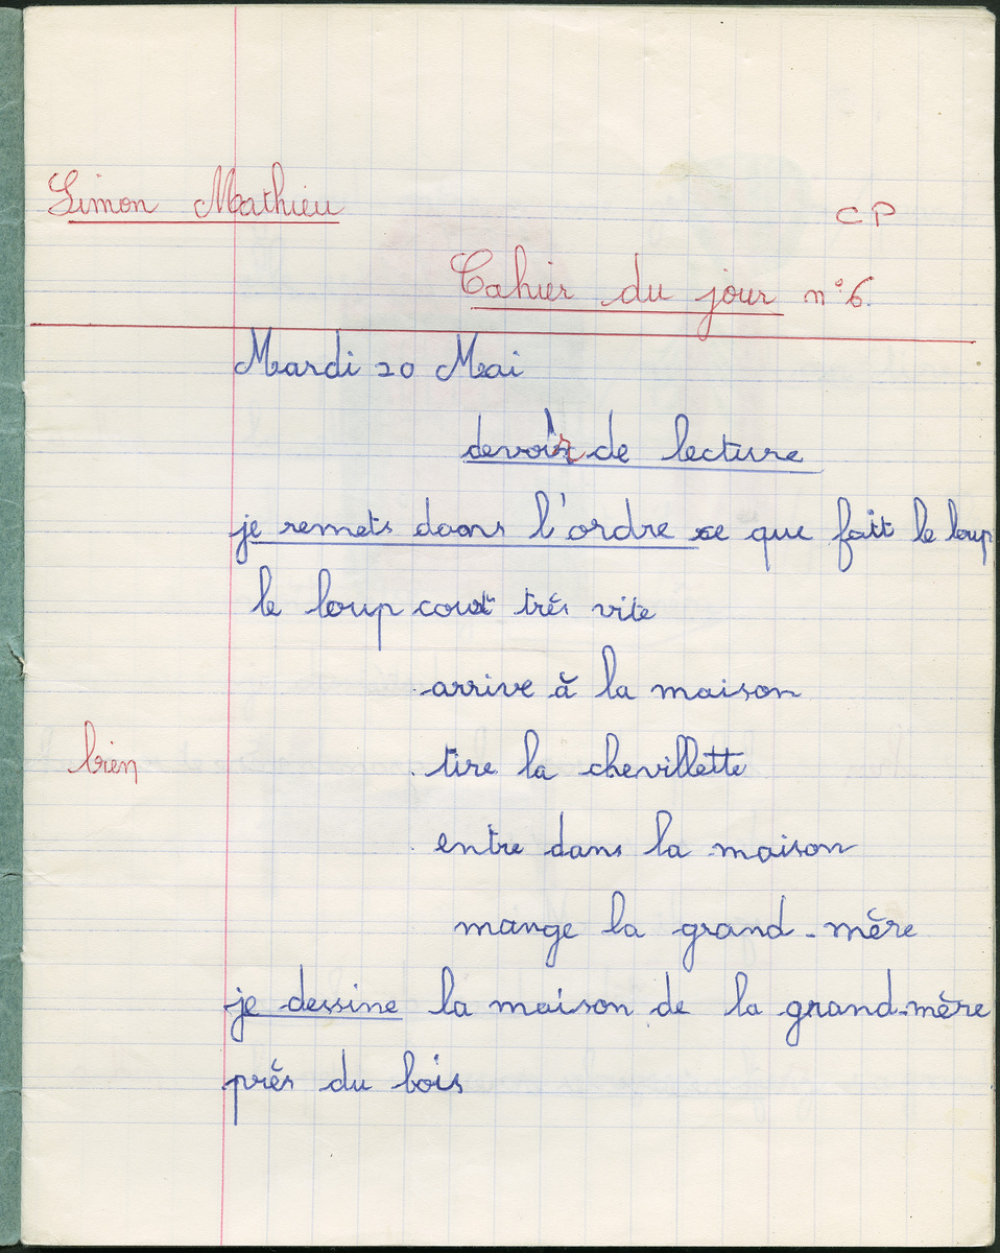 Simon Mathieu
CP
Cahier du jour n°6.
Mardi 20 Mai
devoir de lecture
je remets dans l'ordre ce que fait le loup
le loup court très vite
arrive à la maison
bien
tire la chevillette
entre dans la maison
mange la grand-mère
je dessine la maison de la grand-mère
près du bois